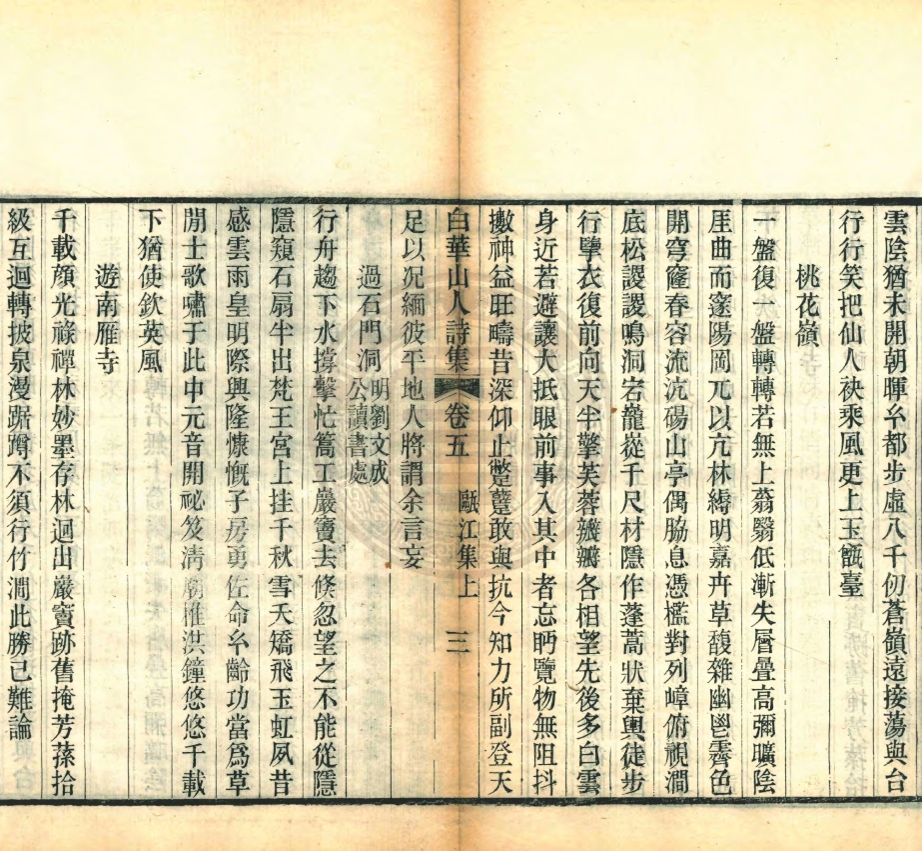 雲陰猶未開朝暉幺都步虛八千仞蒼嶺遠接蕩與台
行行笑把仙人袂乘風更上玉甑臺
桃花嶺
一盤復一盤轉轉若無上蓊翳低漸失層疊高彌曠陰
厓曲而窱陽岡兀以亢林縟明嘉卉草馥雜幽鬯霽色
開穹窿春容流沆碭山亭偶脇息憑檻對列嶂俯視澗
底松謖謖鳴洞宕龍從千尺材隱作蓬蒿狀棄輿徒步
行搴衣復前向天半擎芙蓉瓣瓣各相望先後多白雲
身近若避讓大抵眼前事入其中者忘眄覽物無阻抖
擻神益旺疇昔深仰止蹩躠敢與抗今知力所副登天
白華山人詩集 卷五 甌江集上 三
足以况緬彼平地人將謂余言妄
過石門洞 明劉文成
公讀書處
行舟趨下水撐擊忙篙工巖竇去倏忽望之不能從隱
隱窺石扇半出梵王宮上挂千秋雪夭矯飛玉虹夙昔
感雲雨皇明際興隆慷慨子房勇佐命幺齡功當爲草
閒士歌嘯于此中元音開祕笈淸廟椎洪鐘悠悠千載
下猶使欽英風
遊南雁寺
千載顔光祿禪林妙墨存林迴出巖竇跡舊掩芳蓀拾
級互迴轉披泉漫踞蹲不須行竹澗此勝已難論